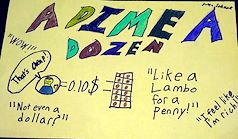 A DIME A
DOZEN
"WOW!!!"
"That's cheap!"
= 0.10$ =
"Not even a
dollar?"
"Like a
Lambo
for a
Penny!"
"I feel like
I'm rich!"